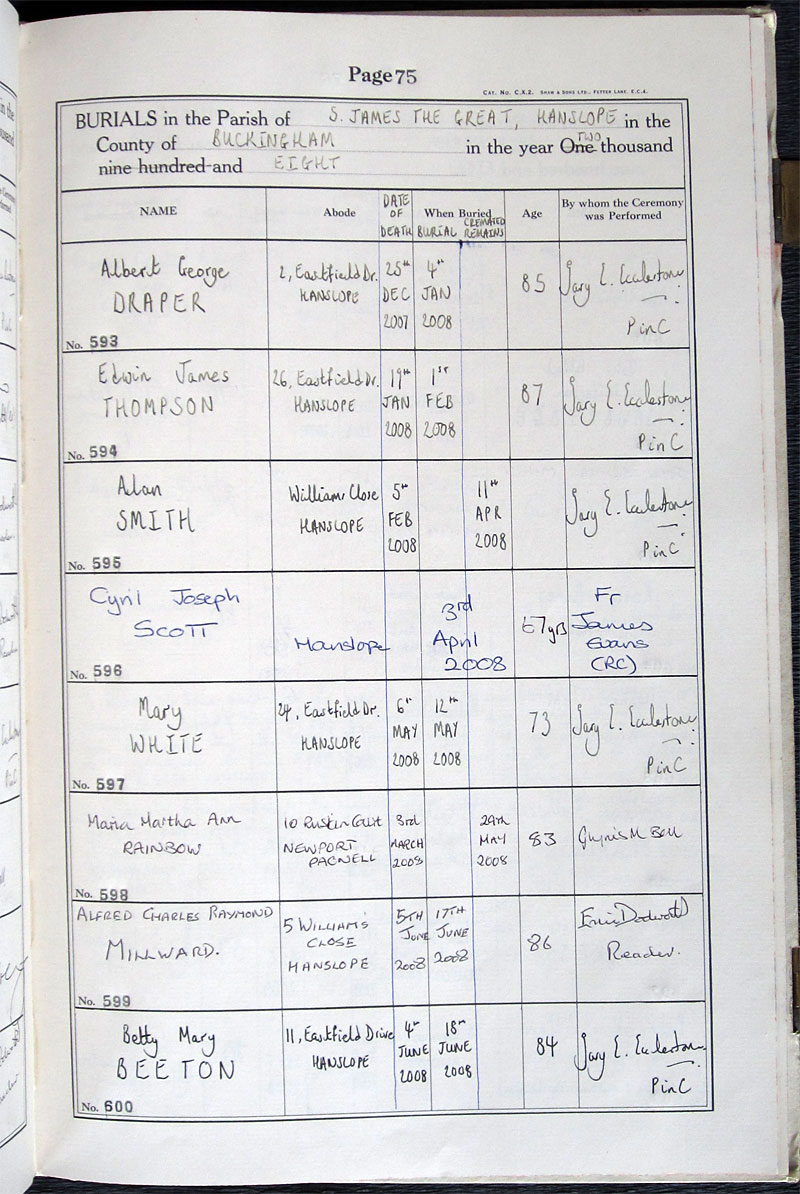 Page 75
CAT. No. C.X.2. SHAW & SONS LTD., FETTER LANE, E.C.4.
BURIALS in the Parish of S. JAMES THE GREAT, HANSLOPE in the
County of BUCKINGHAM in the year One TWO thousand
nine hundred and EIGHT
NAME Abode DATE OF DEATH When Buried BURIAL CREMATED REMAINS Age By whom the Ceremony was Performed
Albert George 2, Eastfield Dr. 25th 4th 85 Gary E. Ecclestone
DRAPER HANSLOPE DEC JAN
2007 2008 P in C
No. 593
Edwin James 26, Eastfield Dr. 19th 1st 87 Gary E. Ecclestone
THOMPSON HANSLOPE JAN FEB
2008 2008 P in C
No. 594
Alan Williams Close 5th 11th Gary E. Ecclestone
SMITH HANSLOPE FEB APR
2008 2008 P in C
No. 595
Cyril Joseph 3rd 67yrs Fr
SCOTT Hanslope April James
2008 Evans
(RC)
No. 596
Mary 24, Eastfield Dr. 6th 12th 73 Gary E. Ecclestone
WHITE HANSLOPE MAY MAY
2008 2008 P in C
No. 597
Maria Martha Ann 10 Ruskin Court 3rd 29th 83 Glynis M Bell
RAINBOW NEWPORT MARCH MAY
PAGNELL 2008 2008
No. 598
ALFRED CHARLES RAYMOND 5 WILLIAMS 5TH 17TH 86
MILLWARD. CLOSE JUNE JUNE Reader.
HANSLOPE 2008 2008
No. 599
Betty Mary 11, Eastfield Drive 4th 18th 84 Gary E. Ecclestone
BEETON HANSLOPE JUNE JUNE
2008 2008 P in C
No. 600